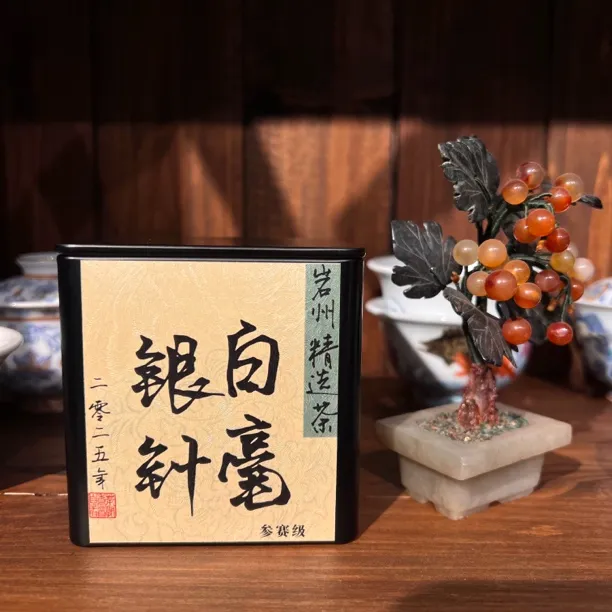 岩州 精选茶
白毫
银针
二零二五年
参赛级